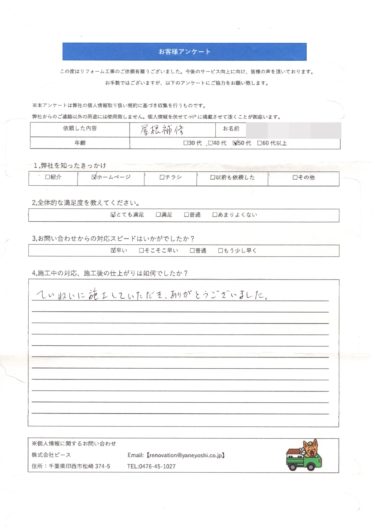 お客様アンケート
この度はリフォーム工事のご依頼有難うございました。今後のサービス向上に向け、皆様の声を頂いております。
お手数ではございますが、以下のアンケートにご協力をお願い致します。
※本アンケートは弊社の個人情報取り扱い規約に基づき収集を行うものです。
弊社からのご連絡以外の用途には使用致しません。個人情報を伏せてHPに掲載させて頂くことが御座います。
依頼した内容 屋根補修 お名前
年齢 □30代 □40代 ☑50代 □60代以上
1,弊社を知ったきっかけ
□紹介 ☑ホームページ □チラシ □以前も依頼した □その他
2,全体的な満足度を教えてください。
☑とても満足 □満足 □普通 □あまりよくない
3,お問い合わせからの対応スピードはいかがでしたか?
☑早い □そこそこ早い □普通 □もう少し早く
4,施工中の対応、施工後の仕上がりは如何でしたか?
ていねいに施工していただき、ありがとうございました。
※個人情報に関するお問い合わせ
株式会社ピース Email:【renovation@yaneyoshi.co.jp】
住所：千葉県印西市松崎374-5 TEL:0476-45-1027